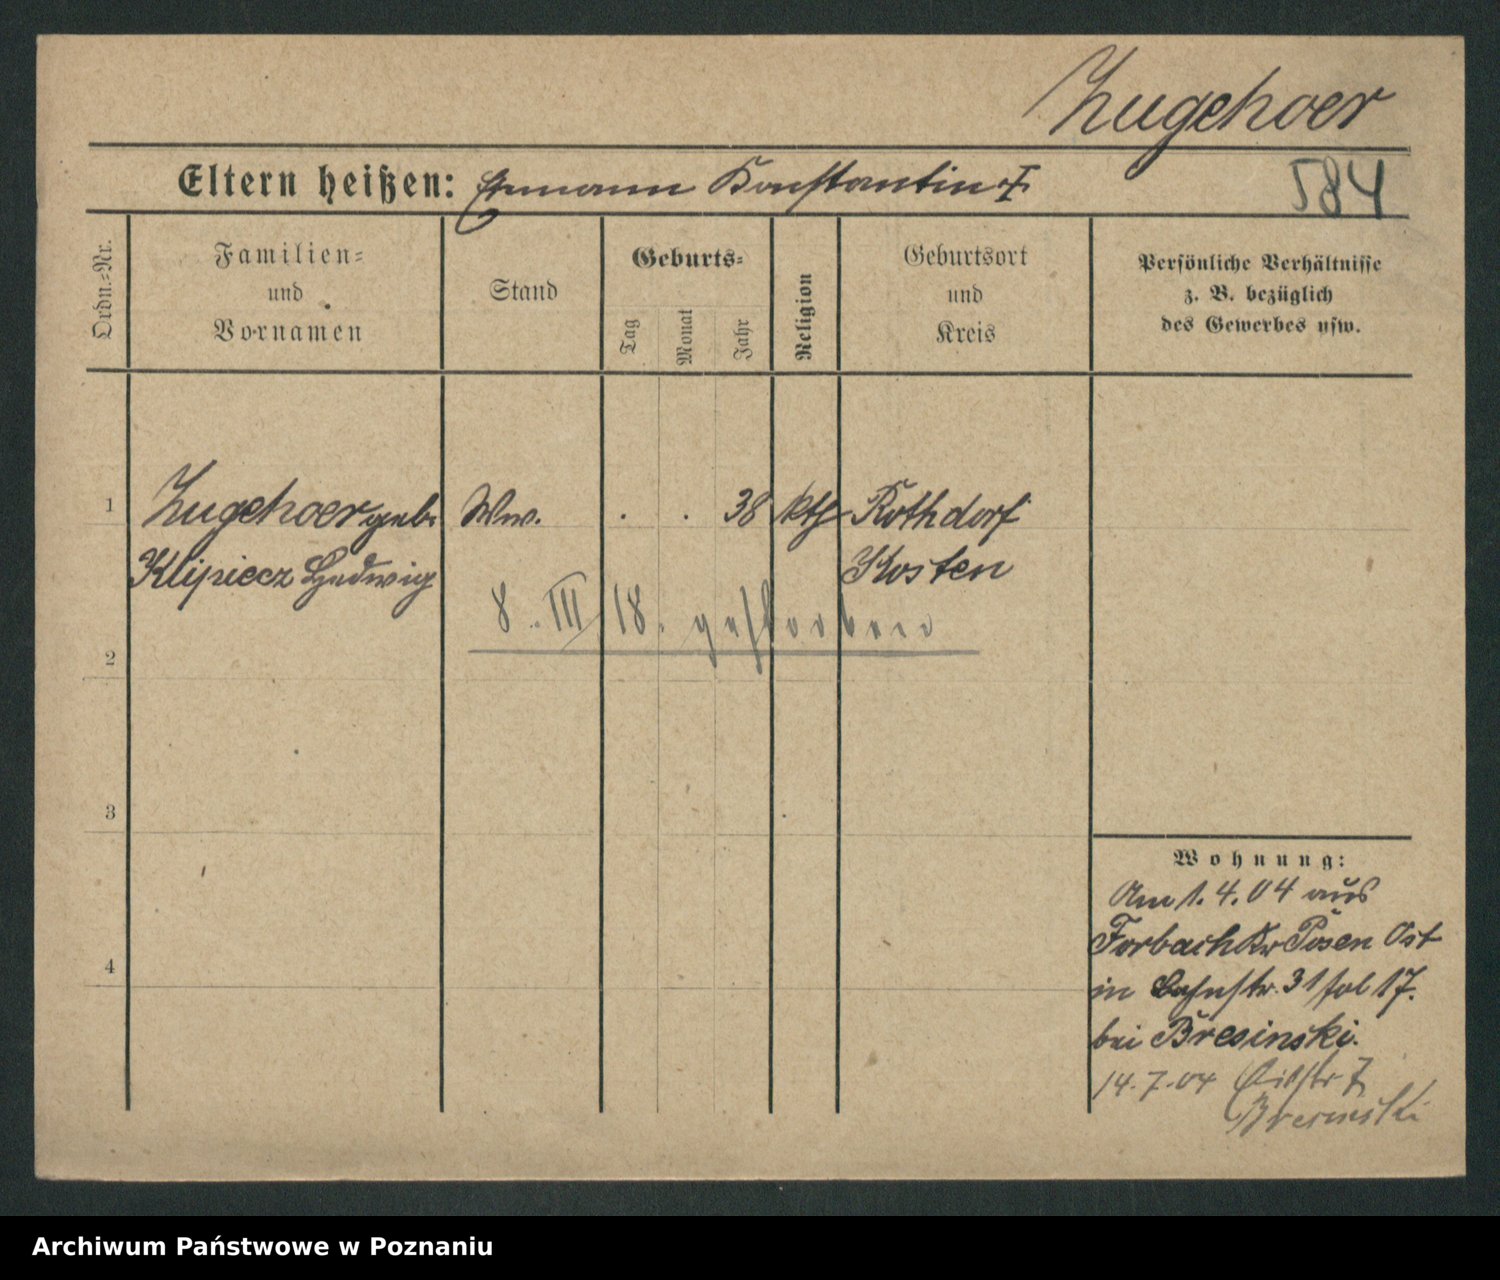 Zugehoer
Eltern heißen: Ehemann Konstantin †
584
Ordn.=Nr.
Familien=
und
Vornamen
Stand
Geburts=
Tag
Monat
Jahr
Religion
Geburtsort
und
Kreis
Persönliche Verhältnisse
z. B. bezüglich
des Gewerbes usw.
1 Zugehoer geb. Ww. . . 38 kth Rothdorf
Klipiecz Hedwig Kosten
8. III 18. gestorben
2
3
4
Wohnung:
Am 1. 4. 04 aus
Forbach Kr Posen Ost
in Bahnstr. 31 fol 17.
bei Bresinski.
14. 7. 04
Bresinski
Archiwum Państwowe w Poznaniu